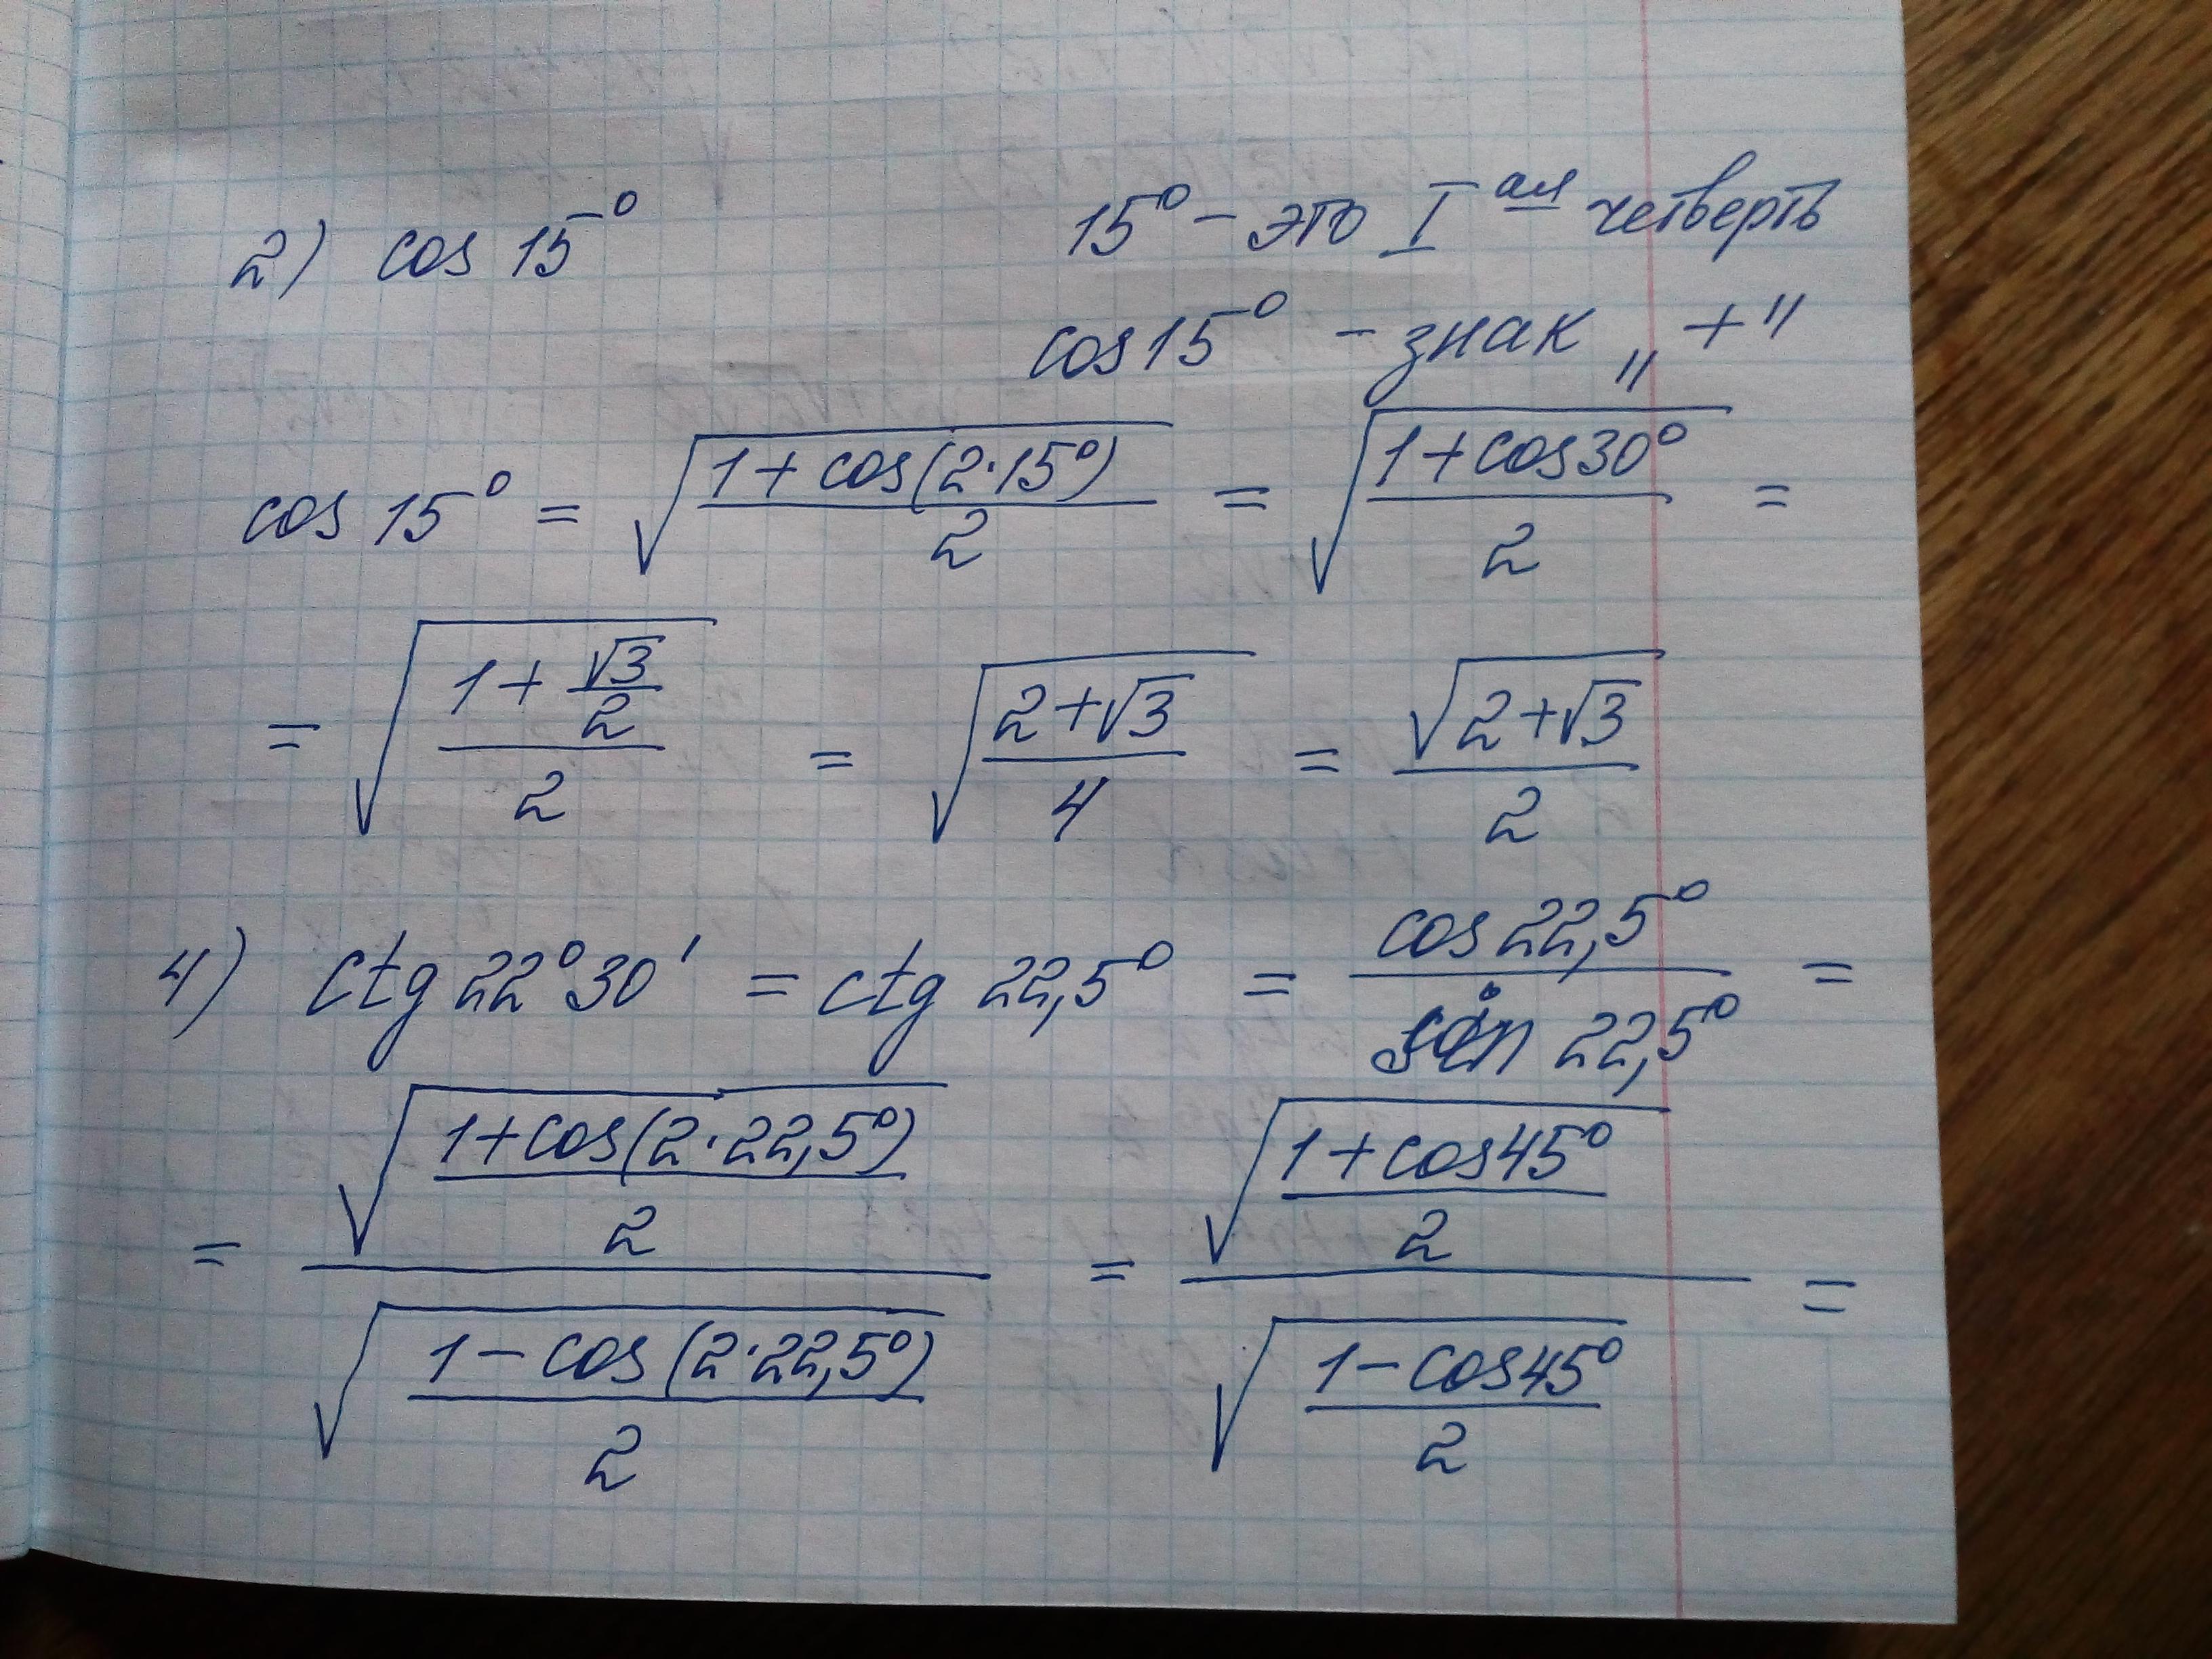 2) cos 15° 15° – это I ая четверть
cos 15° – знак „+"
cos 15° = √((1 + cos(2·15°))/2) = √((1 + cos 30°)/2) =
= √((1 + √3/2)/2) = √((2 + √3)/4) = √(2 + √3)/2
4) ctg 22°30' = ctg 22,5° = cos 22,5°/sin 22,5° =
= √((1 + cos(2·22,5°))/2)/√((1 – cos(2·22,5°))/2) = √((1 + cos 45°)/2)/√((1 – cos 45°)/2) =